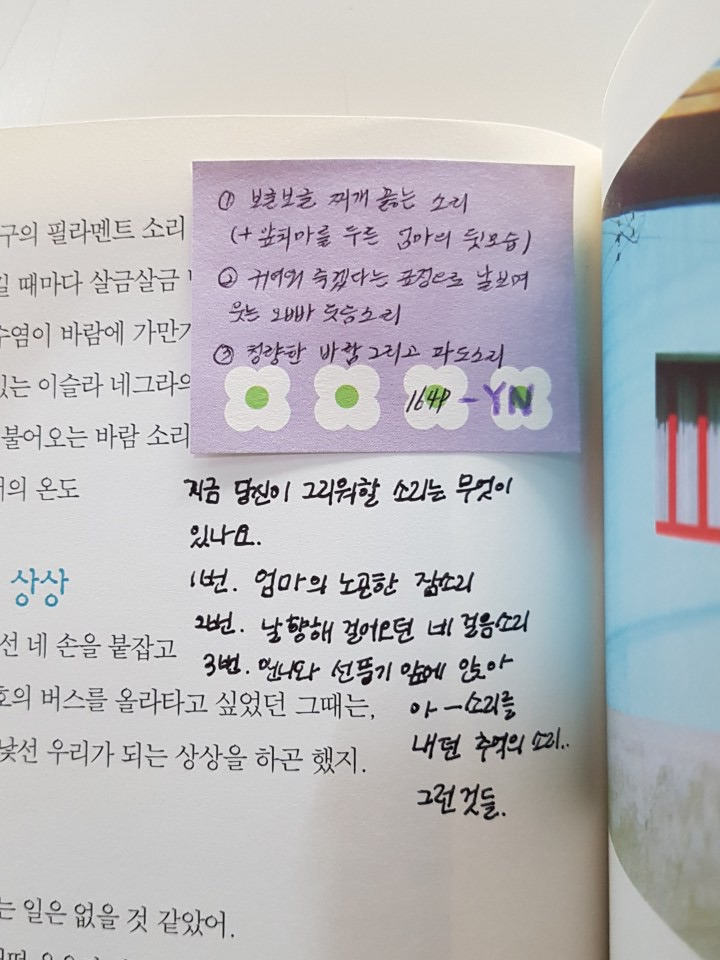 ① 보글보글 찌개 끓는 소리
(+ 앞치마를 두른 엄마의 뒷모습)
② 귀여워 죽겠다는 표정으로 날보며
웃는 오빠 웃음소리
③ 청량한 바람 그리고 파도소리
164P - YN
구의 필라멘트 소리
일 때마다 살금살금
수염이 바람에 가만가
있는 이슬라 네그라의
불어오는 바람 소리
의 온도
지금 당신이 그리워할 소리는 무엇이
있나요.
1번. 엄마의 노곤한 잠소리
2번. 날 향해 걸어오던 네 걸음소리
3번. 언니와 선풍기 앞에 앉아
아 - 소리를
내던 추억의 소리..
그런 것들.
상상
선 네 손을 붙잡고
호의 버스를 올라타고 싶었던 그때는,
낯선 우리가 되는 상상을 하곤 했지.
는 일은 없을 것 같았어.